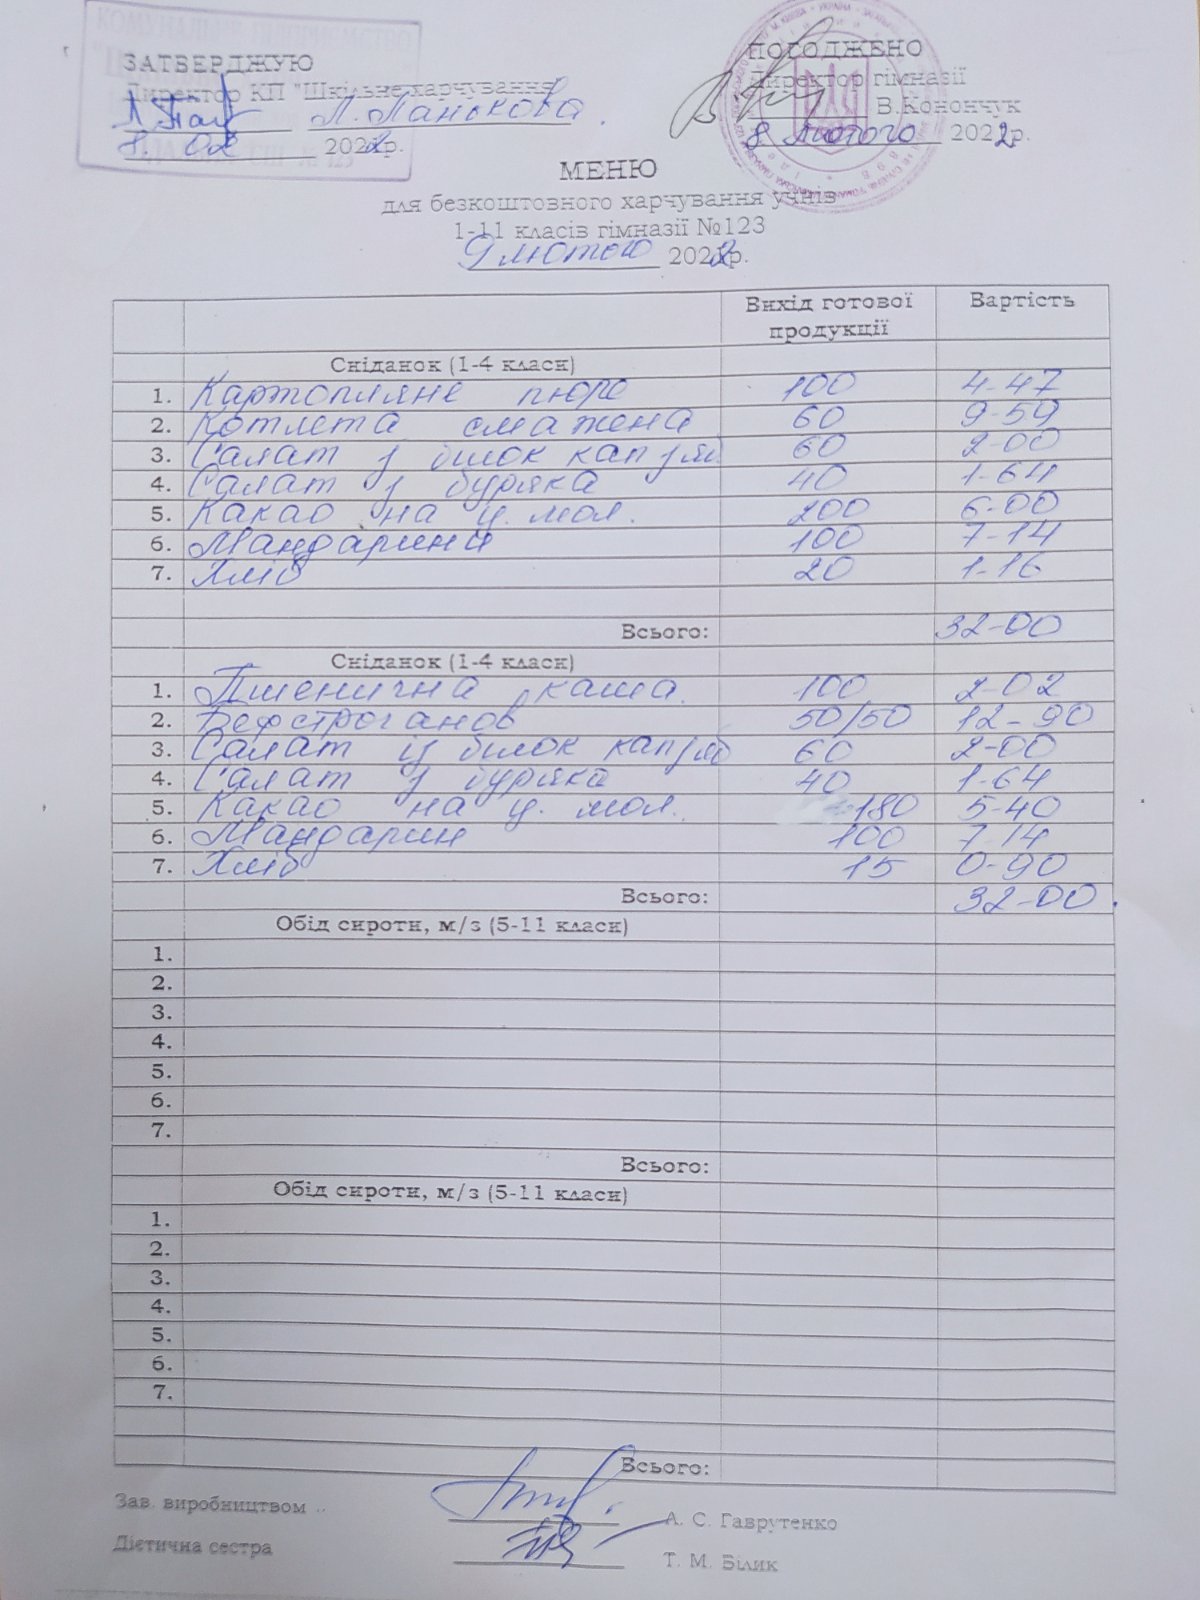 ЗАТВЕРДЖУЮ
Директор КП "Шкільне харчування
Л. Панькова
8. 02 2022р.
ПОГОДЖЕНО
Директор гімназії
В.Конончук
8 лютого 2022р.
МЕНЮ
для безкоштовного харчування учнів
1-11 класів гімназії №123
9 лютого 2022р.
Вихід готової продукції Вартість
Сніданок (1-4 класи)
1. Картопляне пюре 100 4-47
2. Котлета смажена 60 9-59
3. Салат з білок капусти 60 2-00
4. Салат з буряка 40 1-64
5. Какао на ц. мол. 200 6-00
6. Мандарини 100 7-14
7. Хліб 20 1-16
Всього: 32-00
Сніданок (1-4 класи)
1. Пшенична каша 100 2-02
2. Бефстроганов 50/50 12-90
3. Салат із білок кап 60 2-00
4. Салат з буряка 40 1-64
5. Какао на ц. мол. 180 5-40
6. Мандарин 100 7-14
7. Хліб 15 0-90
Всього: 32-00.
Обід сироти, м/з (5-11 класи)
1.
2.
3.
4.
5.
6.
7.
Всього:
Обід сироти, м/з (5-11 класи)
1.
2.
3.
4.
5.
6.
7.
Всього:
Зав. виробництвом А. С. Гаврутенко
Дієтична сестра Т. М. Білик